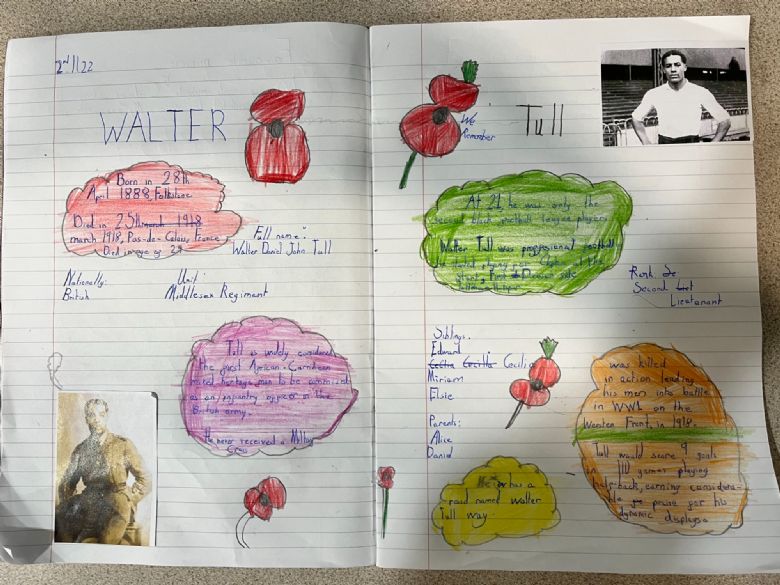 2nd/11/22
WALTER
Born in 28th
April 1888, Folkstone
Died in 25th march 1918
march 1918, Pas-de-Calais, France
Died in age of 29
Full name:
Walter Daniel John Tull
Nationally:
British
Unit:
Middlesex Regimant
Tull is widely considered
the first African-Carribean
mixed heritage man to be commissed
as an infantry officer in the
British army.
He never received a Military
Cross
We
Remember
Tull
At 21, he was only the
second black football league players
Walter Tull was progessional football
Rank:
Second
Lieutenant
Siblings.
Edward
Cecilia Cecilla Cecilia
Miriam
Elsie
Parents:
Alice
Daniel
was killed
in action leading
his men into battle
in WW1 on the
Western Front, in 1918.
Tull would score 9 goals
in 110 games playing
half-back, earning considera-
ble praise for his
dynamic displays
has a
road named walter
Tull way